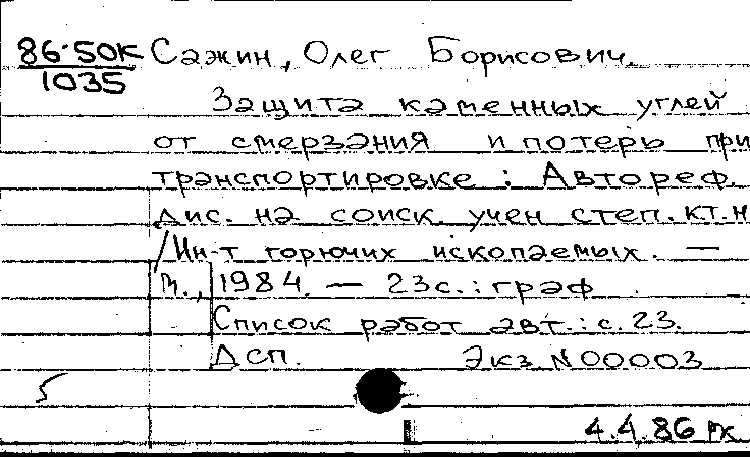 86-50К Сажин, Олег Борисович.
1035
Защита каменных углей
от смерзания и потерь при
транспортировке: Автореф.
дис. на соиск. учен степ. к.т.н
/Ин-т горючих ископаемых. —
М., 1984. — 23с.: граф
Список работ авт.: с. 23.
Дсп. Экз. N 00003
4.4.86